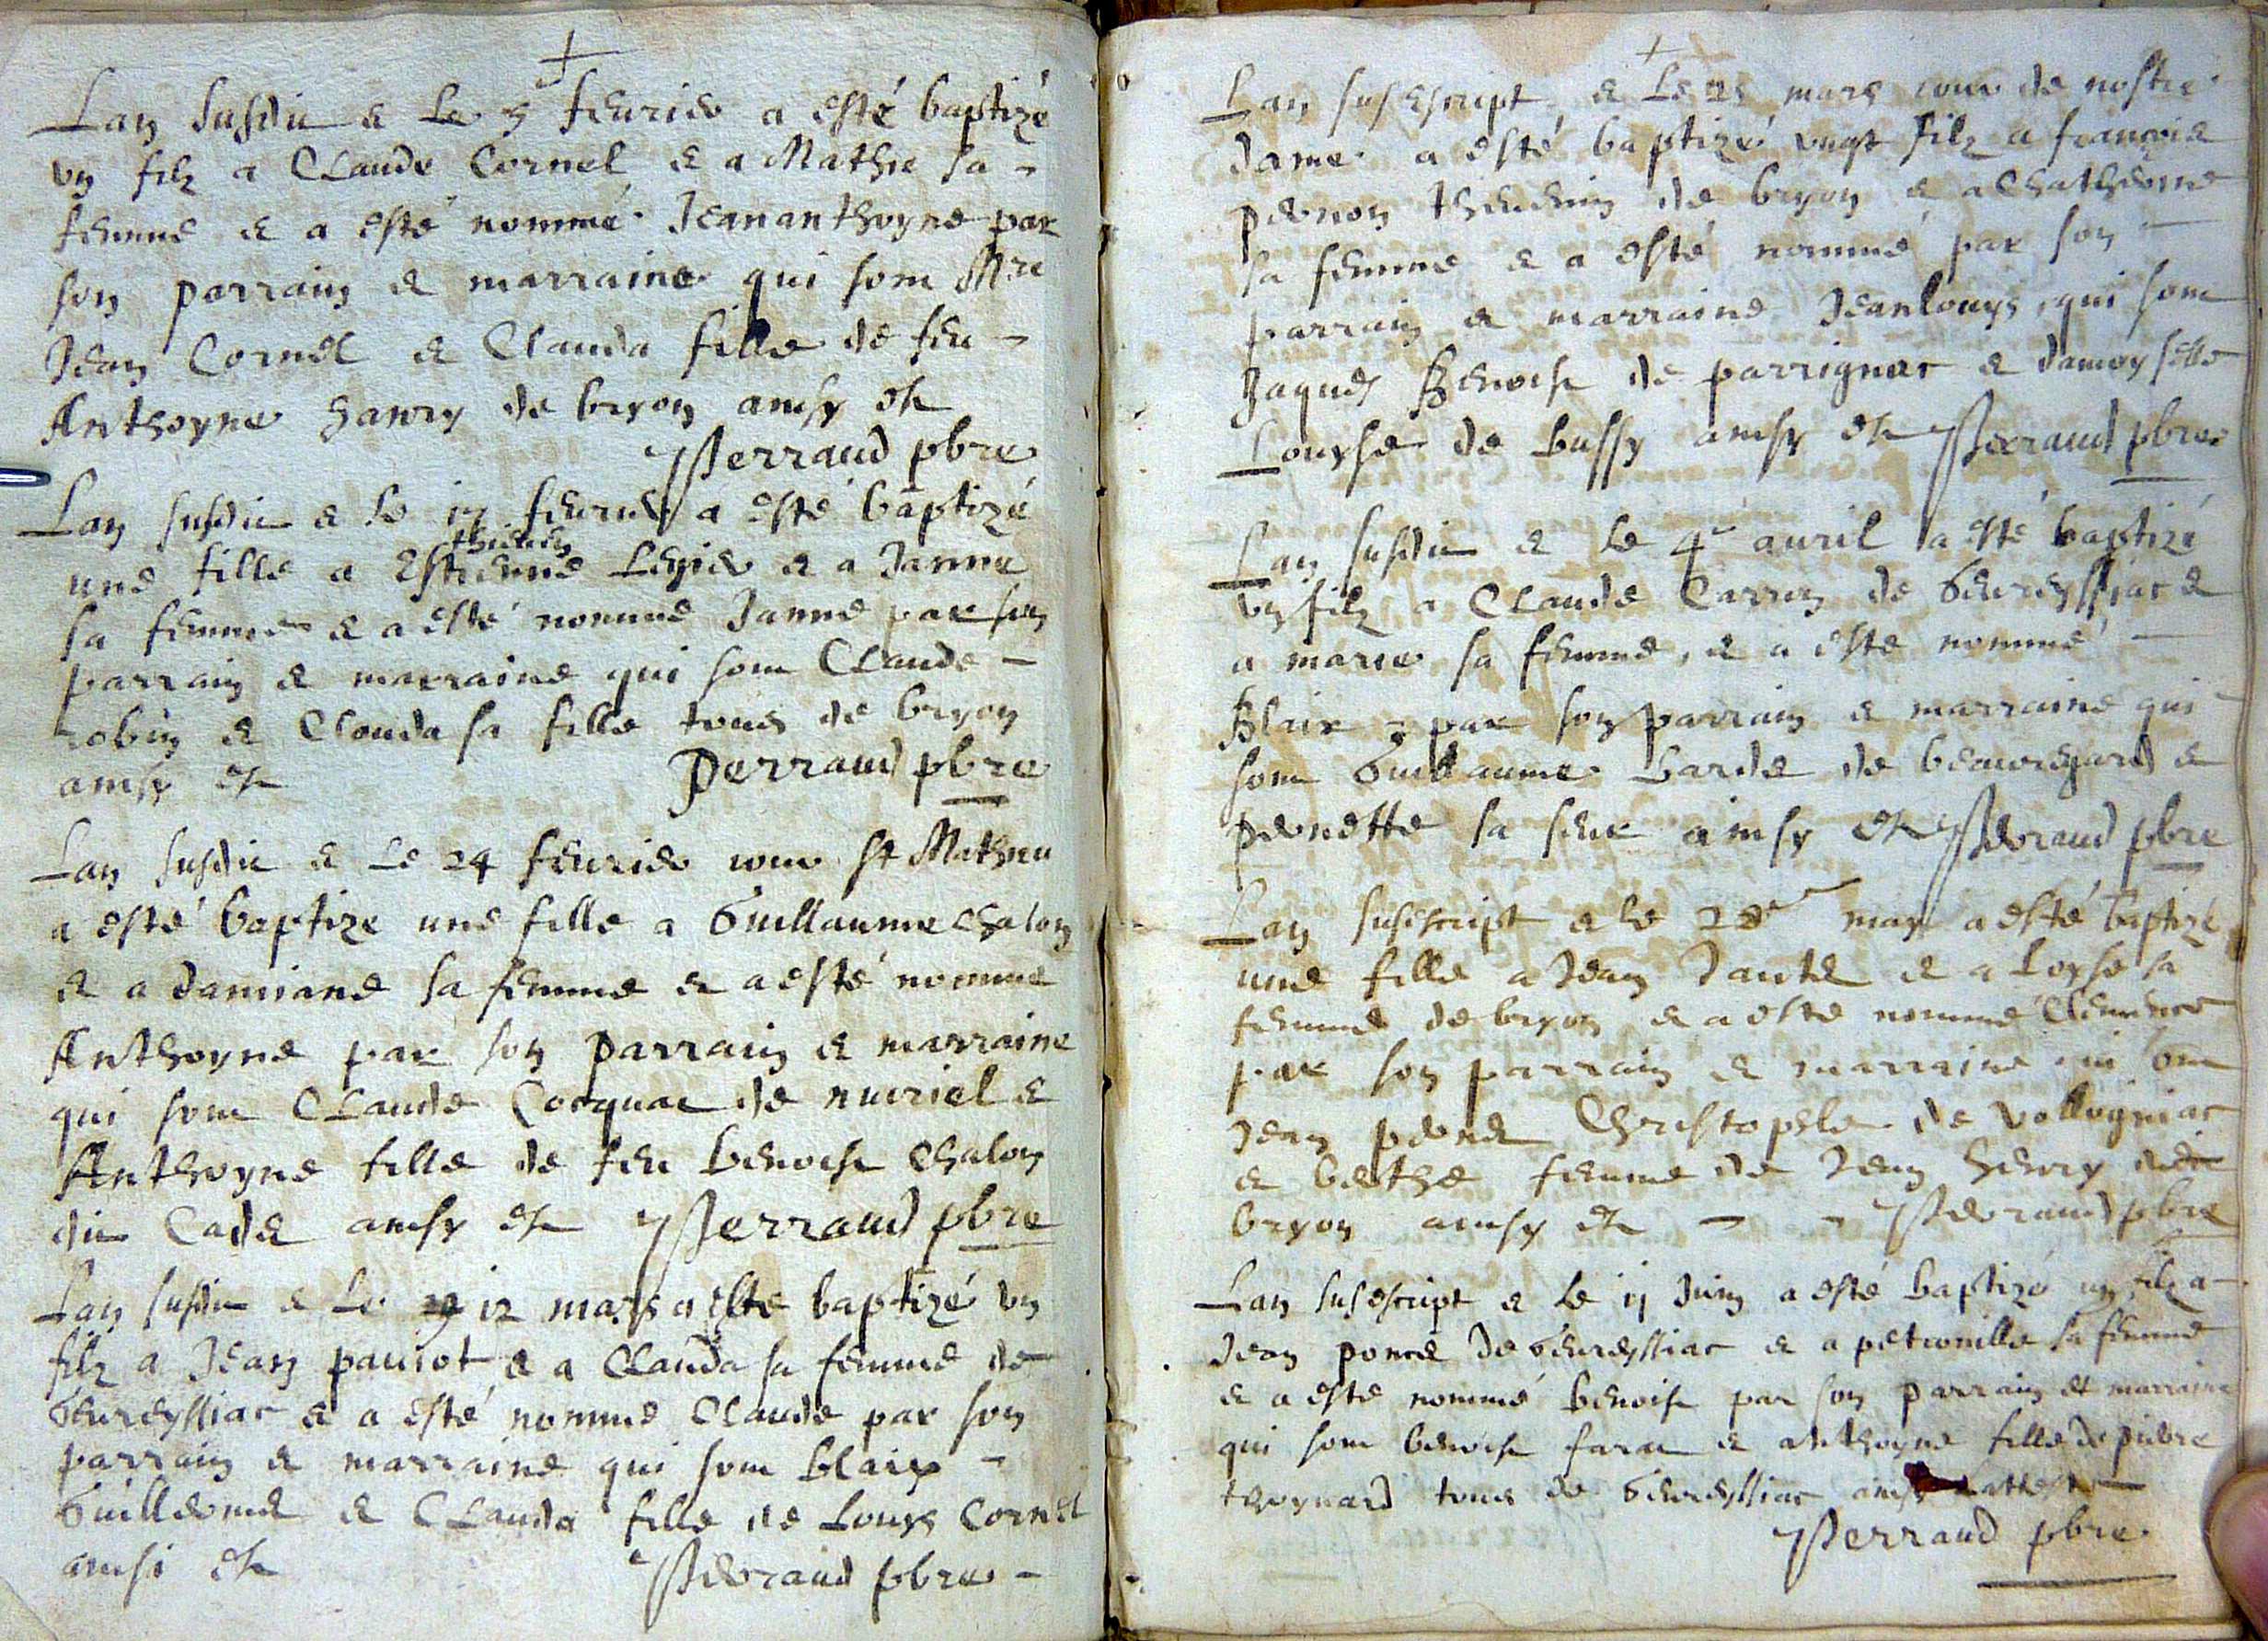 Lan susdit & le 5 feurier a esté baptizé
un filz a Claude Cornel & a Mathie sa
femme & a esté nommé Jeananthoyne par
son parrain & marraine qui sont Mre
Jean Cornel & Clauda fille de feu
Anthoyne hanry de bryon ainsy est
Perraud pbre
Lan susdit & le 17 feurier a esté baptizé
thieuen
une fille a Estienne & a Janne
sa femme & a esté nomme Janne par son
parrain & marraine qui sont Claude
robin & Clouda sa fille tous de bryon
ainsy est Perraud pbre
Lan susdit & le 24 feurier iour st Mathieu
a esté baptize une fille a Guillaume chalon
& a damiane sa femme & a esté nomme
Anthoyne par son parrain & marraine
qui sont Claude Cocquac de nuiriel &
Anthoyne fille de feu benoist chalon
dit Cade ainsy est Perraud pbre
Lan susdit & le 12 mars a este baptizé un
filz a Jean pauiot & a Clauda sa femme de
Geureyssiac & a esté nomme Claude par son
parrain & marraine qui sont blaix
Guillerme & Clauda fille de Louys Cornel
ainsi est Perraud pbre
Lan susescript & le 25 mars iour de nostre
dame a esté baptizé vngt filz a francois
pernon theuenin de bryon & a Chatherine
sa femme & a esté nommé par son
parrain & marraine Jeanlouys, qui sont
Jaques Benoist de parrignac & damoyselle
Louyse de bussy ainsy est Perraud pbre
Lan susdit & le 4e auril a esté baptizé
un filz a Claude Carron de Geureyssiac &
a marie sa femme, & a este nommé
Blaix par son parrain & marraine qui
sont Guillaume barde de beauregard &
pernette sa seur ainsy est Perraud pbre
Lan susescript & le 28e may a esté baptizé
une fille a Jean & a Loyse sa
femme de bryon & a este nommé Clemence
par son parrain & marraine qui sont
Jean pierre Christophle de vollogniac
& berthe femme de Jean henry dudit
bryon ainsy est Perraud pbre
Lan susescript & le 11 Juin a esté baptizé un filz a
Jean ponce de Geureyssiac & a petronille sa femme
& a este nommé benoist par son parrain et marraine
qui sont benoist & anthoyne fille de pierre
thoynard tous de Geureyssiac ainsy latteste
Perraud pbre